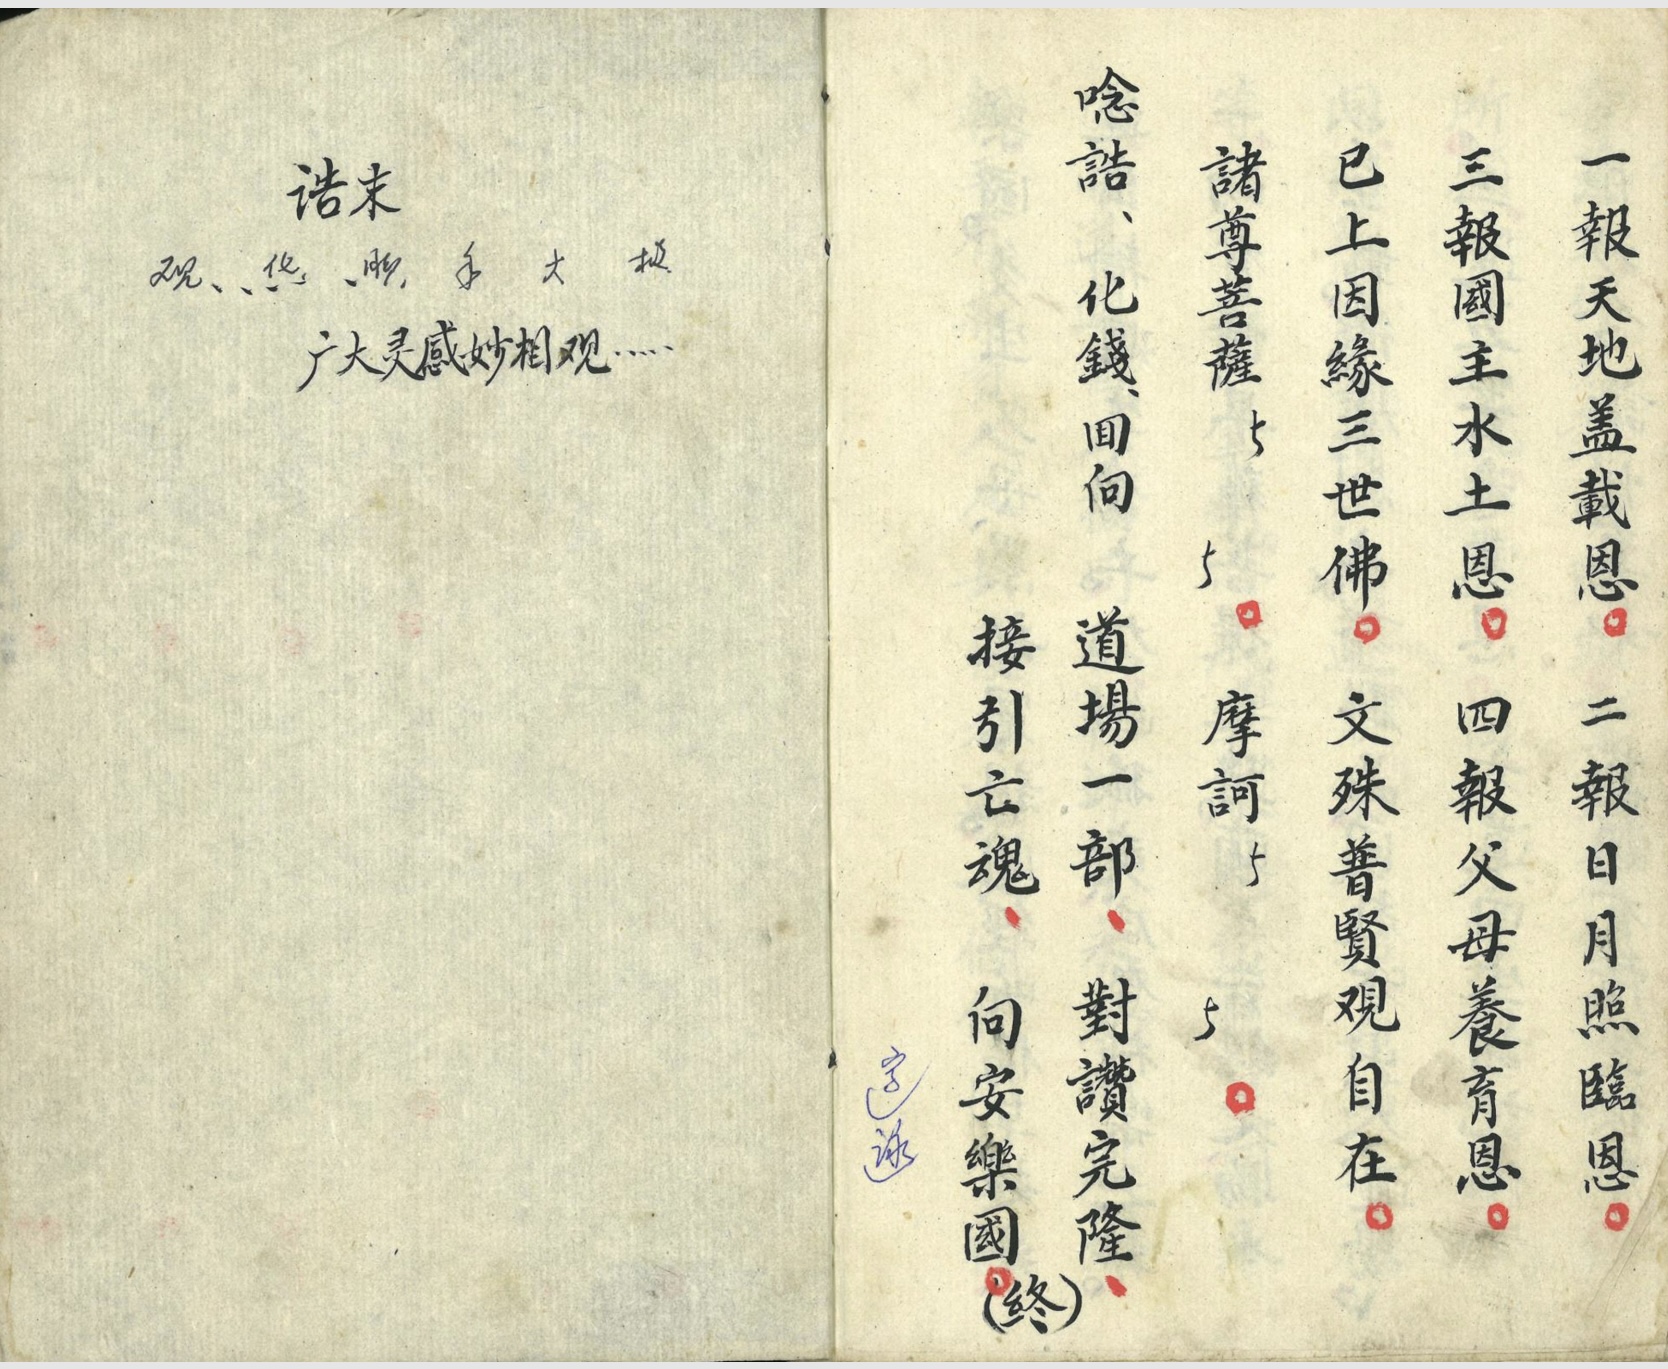 一報天地盖載恩。 二報日月照臨恩。
三報國主水土恩。 四報父母養育恩。
已上因緣三世佛。 文殊普賢观自在。
諸尊菩薩 。 摩訶 。
唸誥、化錢、回向 道場一部、對讚完隆、
接引亡魂、向安樂國。
(終)
诰末
观、、、手大
广大灵感妙相观……